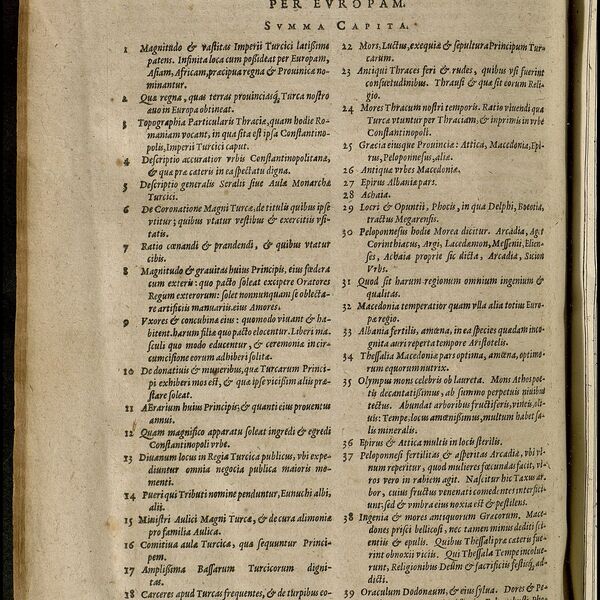 PER EVROPAM.
SVMMA CAPITA.
1 Magnitudo & vastitas Imperii Turcici latissime
patens. Infinita loca cum possideat per Europam,
Asiam, Africam, præcipua regna & Prouincia no-
minantur.
2 Quæ regna, quas terras prouinciasq; Turca nostro
æuo in Europa obtineat.
3 Topographia Particularis Thraciæ, quam hodie Ro-
maniam vocant, in qua sita est ipsa Constantino-
polis, Imperii Turcici caput.
4 Descriptio accuratior vrbis Constantinopolitanæ,
& quæ præ cateris in ea spectatu digna.
5 Descriptio generalis Seralis siue Aulæ Monarchæ
Turcici.
6 De Coronatione Magni Turcæ, de titulis quibus ipse
vtitur; quibus vtatur vestibus & exercitiis vsi-
tatis.
7 Ratio cœnandi & prandendi, & quibus vtatur
cibis.
8 Magnitudo & grauitas huius Principis, eius fœdera
cum exteris: quo pacto soleat excipere Oratores
Regum exterorum: solet nonnunquam se oblecta-
re artificiis manuariis. eius Amores.
9 Vxores & concubinæ eius: quomodo viuant & ha-
bitent. harum filiæ quo pacto elocentur. Liberi ma-
sculi quo modo educentur, & ceremoniæ in cir-
cumcisione eorum adhiberi solitæ.
10 De donatiuis & muneribus, quæ Turcarum Princi-
pi exhiberi mos est, & quæ ipse vicissim aliis præ-
stare soleat.
11 Aerarium huius Principis, & quanti eius prouentus
annui.
12 Quam magnifico apparatu soleat ingredi & egredi
Constantinopoli vrbe.
13 Diuanum locus in Regia Turcica publicus, vbi expe-
diuntur omnia negocia publica maioris mo-
menti.
14 Pueri qui Tributi nomine penduntur, Eunuchi albi,
alii.
15 Ministri Aulici Magni Turcæ, & de cura alimoniæ
pro familia Aulica.
16 Comitiua aulæ Turcicæ, quæ sequuntur Princi-
pem.
17 Amplissima Bassarum Turcicorum digni-
tas.
18 Carceres apud Turcas frequentes, & de turpibus co-
22 Mors, Luctus, exequiæ & sepultura Principum Tur-
carum.
23 Antiqui Thraces feri & rudes, quibus vsi fuerint
consuetudinibus. Thrausi & quæ sit eorum Reli-
gio.
24 Mores Thracum nostri temporis. Ratio viuendi qua
Turcæ vtuntur per Thraciam, & in primis in vrbe
Constantinopoli.
25 Græcia eiusque Prouinciæ: Attica, Macedonia, Epi-
rus, Peloponnesus, aliæ.
26 Antiquæ vrbes Macedoniæ.
27 Epirus Albaniæ pars.
28 Achaia.
29 Locri & Opuntii, Phocis, in qua Delphi, Bœotia,
tractus Megarensis.
30 Peloponnesus hodie Morea dicitur. Arcadia, Agri
Corinthiacus, Argi, Lacedæmon, Messenii, Elien-
ses, Achaia proprie sic dicta, Arcadia, Sicion
Vrbs.
31 Quod sit harum regionum omnium ingenium &
qualitas.
32 Macedonia temperatior quam vlla alia totius Euro-
pæ regio.
33 Albania fertilis, amœna, in ea species quædam in-
cognita auri reperta tempore Aristotelis.
34 Thessalia Macedoniæ pars optima, amœna, optimo-
rum equorum nutrix.
35 Olympus mons celebris ob laureta. Mons Athos poe-
tis decantatissimus, ab summo perpetuis niuibus
tectus. Abundat arboribus fructiferis, vineis, oli-
uis: Tempe, locus amœnissimus, multum habet sa-
lis mineralis.
36 Epirus & Attica multis in locis sterilis.
37 Peloponnesi fertilitas & asperitas Arcadiæ, vbi vi-
num reperitur, quod mulieres fœcundas facit, vi-
ros vero in rabiem agit. Nascitur hic Taxus ar-
bor, cuius fructus venenati comedentes interfici-
unt: sed & vmbra eius noxia est & pestilens.
38 Ingenia & mores antiquorum Græcorum, Mace-
dones prisci bellicosi, nec tamen minus dediti sci-
entiis & epulis. Quibus Thessali cæteri fue-
rint obnoxii piaculis. Qui Thessalæ Tempe incolue-
runt, Religionibus Deûm & sacrificiis festisq; ad-
dicti.
39 Oraculum Dodonæum, & eius sylua. Dores & Pe-